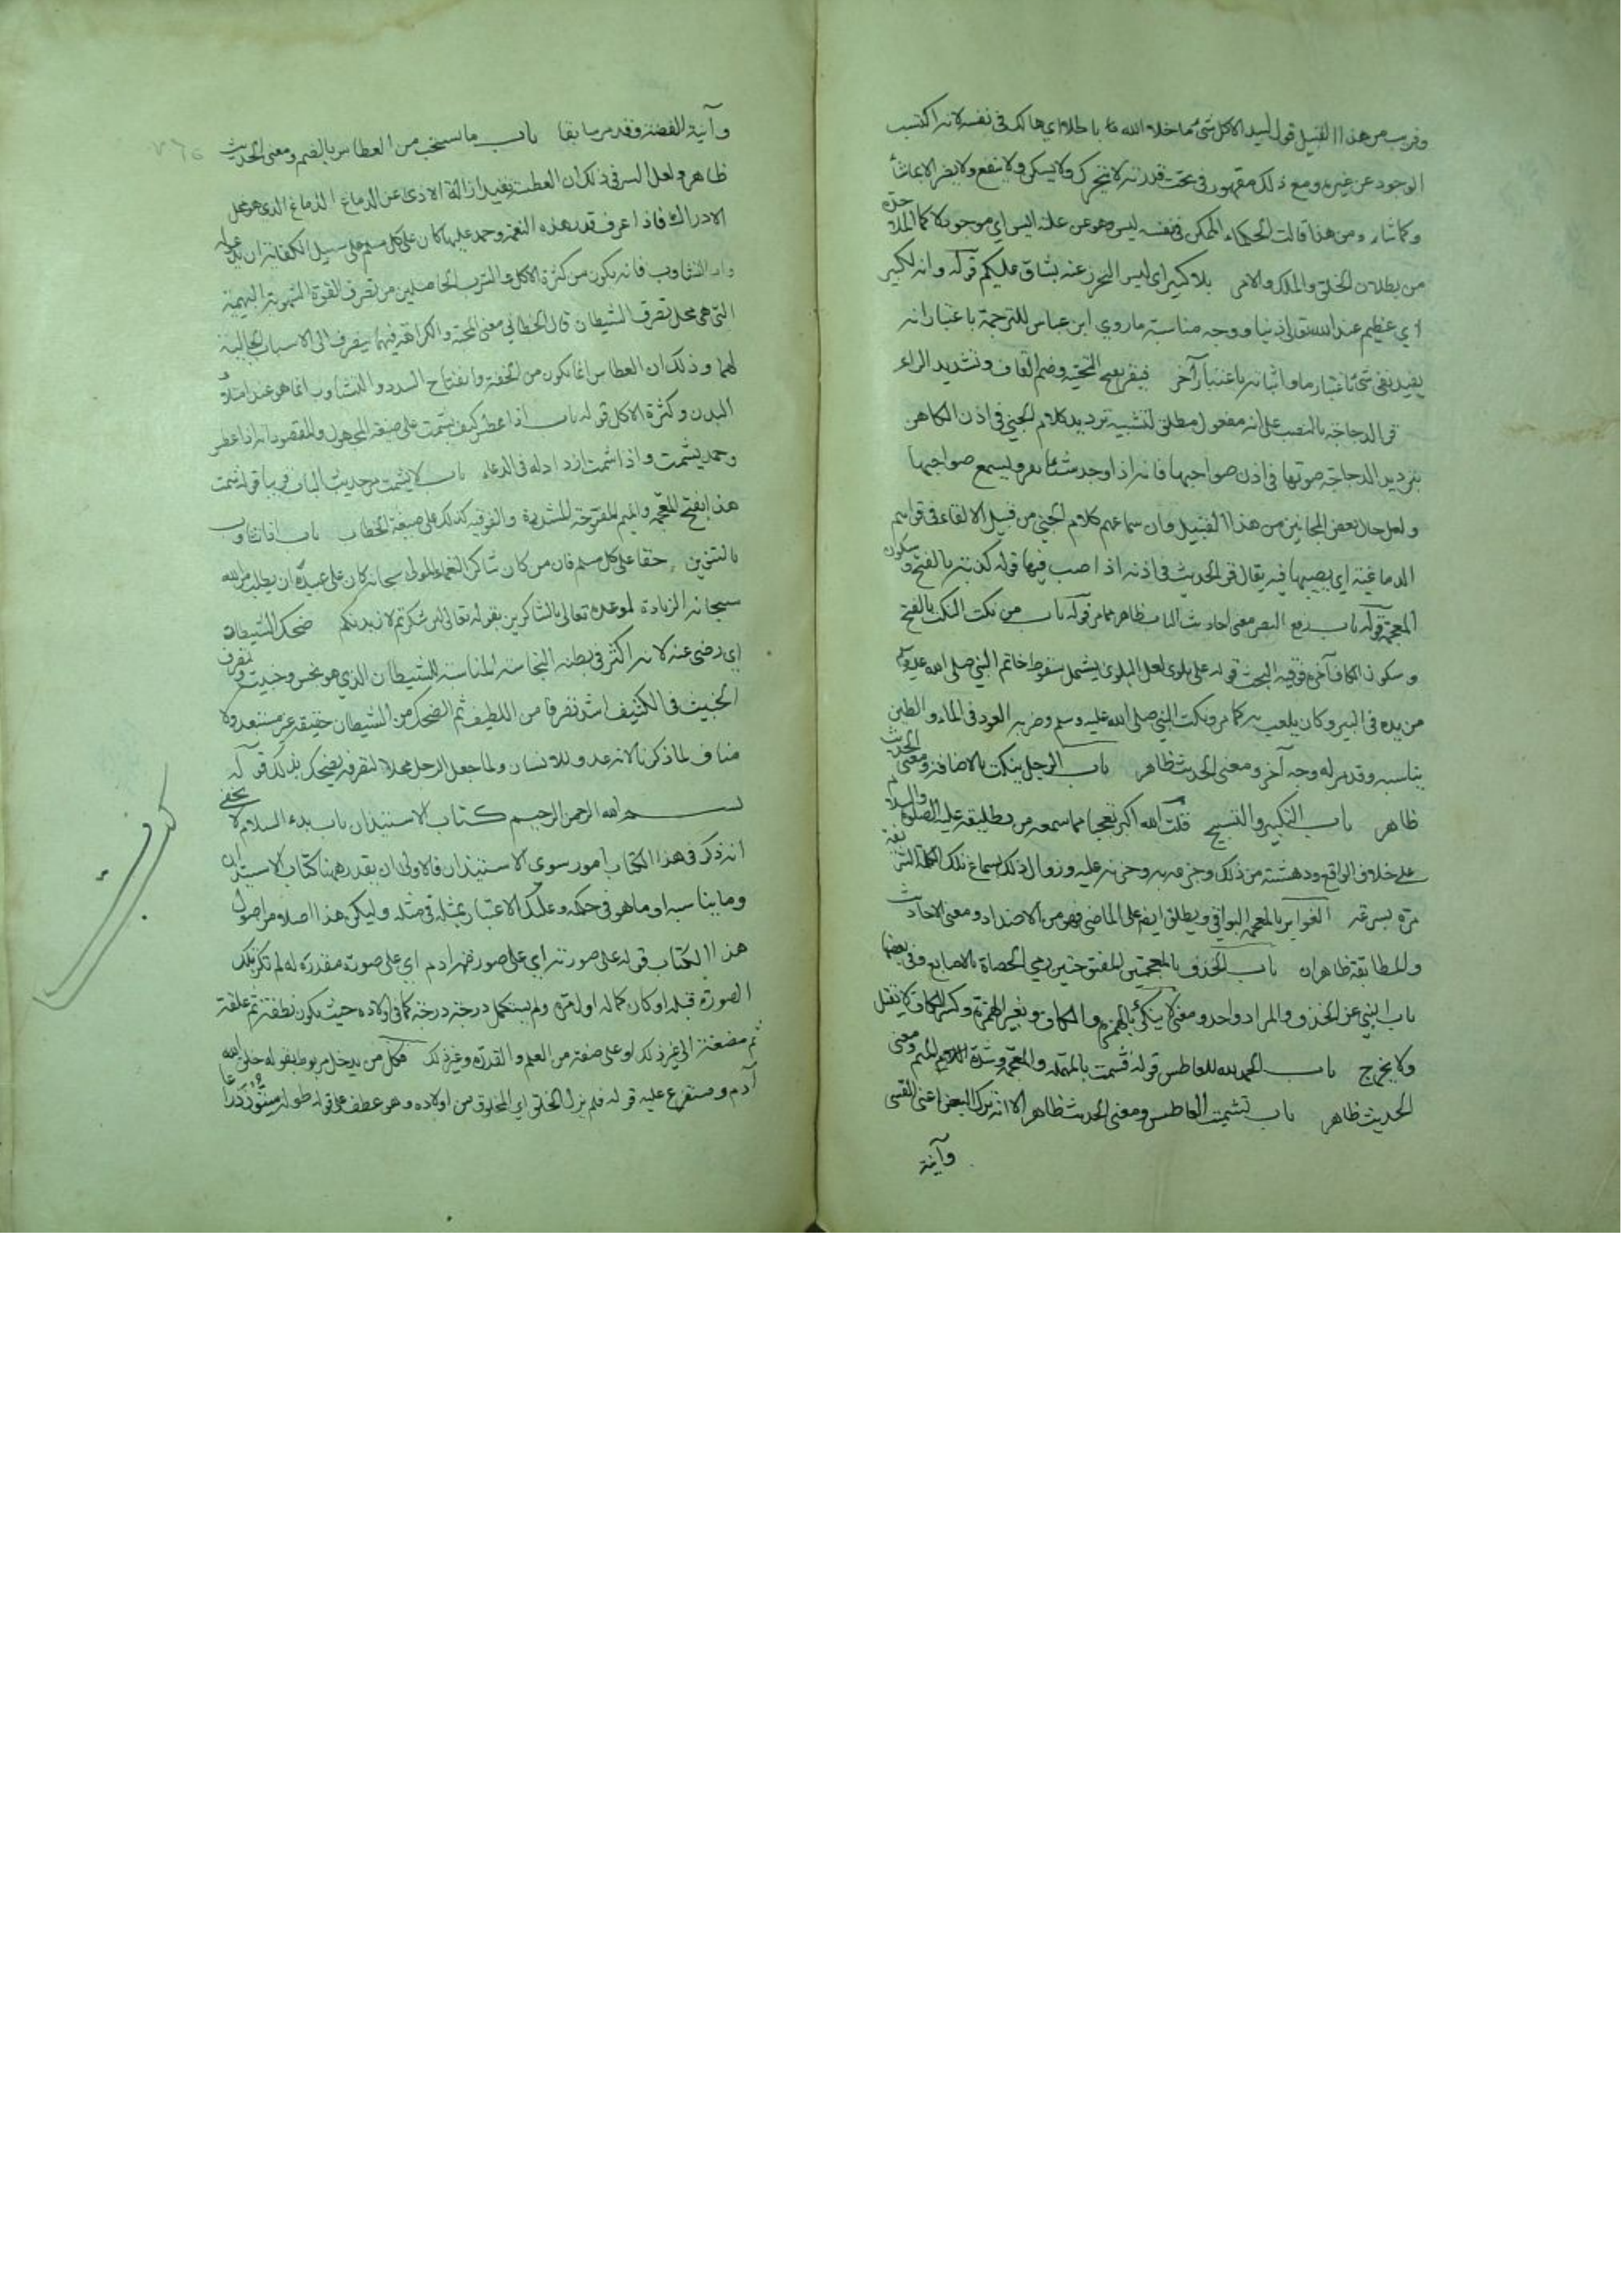 وقريب من هذا القبيل قول لبيد الا كل شئ ما خلا الله باطل اي هالك في نفسه لانه اكتسب
الوجود عن غيره ومع ذلك مقهور في تحت قدرته لا يتحرك ولا يسكن ولا ينفع ولا يضر الا بما شاء
وكما شاء ومن هذا قالت الحكماء الممكن في نفسه ليس وهو عن علته ايس اي موجود
من بطلان الخلق والملك والامر بلا كبير اي ليس التحرز عنه بشاق عليكم قوله وانه لكبير
اي عظيم عند الله تعالى ووجه مناسبة ما روي ابن عباس للترجمة باعتبار انه
يفيد نفي شئ باعتبار ما واثباته باعتبار آخر فيقر بفتح التحتية وضم القاف وتشديد الراء
قر الدجاجة بالنصب على انه مفعول مطلق لتشبيه ترديد كلام الجني في اذن الكاهن
بترديد الدجاجة صوتها في اذن صواحبها فانه اذا وجد شيئا يقر ويسمع صواحبها
ولعل حال بعض المجانين من هذا القبيل وان سماعهم كلام الجني من قبيل الالقاء في قواهم
الدماغية اي يصبها فيه يقال قر الحديث في اذنه اذا صب فيها قوله بالفتح وسكون
المعجمة قوله باب رفع البصر معنى احاديث الباب ظاهر مما مر قوله باب من نكت النكت بالفتح
وسكون الكاف آخره فوقية البحث قوله على بلوى لعل البلوى يشمل سقوط خاتم النبي صلى الله عليه وسلم
من يده في البير وكان يلعب به كما مر ونكت النبي صلى الله عليه وسلم وضربه العود في الماء والطين
يناسبه وقد مر له وجه آخر ومعنى الحديث ظاهر باب الرجل ينكت بالاضافة ومعنى الحديث
ظاهر باب التكبير والتسبيح قلت الله اكبر تعجبا مما سمعه من تطليقه عليه الصلوة والسلام
على خلاف الواقع ودهشته من ذلك وحزنه عليه وزوال ذلك بسماع تلك الكلمة
مرة بسرعة الغوابر بالمعجمة البواقي ويطلق ايضا على الماضي فهو من الاضداد ومعنى الاحاديث
والمطابقة ظاهران باب الخذف بالمعجمتين المفتوحتين رمي الحصاة بالاصابع وفي بعضها
باب النهي عن الخذف والمراد واحد ومعنى لا ينكئ بالهمزة والكاف وبغير الهمزة وكسر الكاف لا يقتل
ولا يجرح باب الحمد لله للعاطس قوله فشمت بالمهملة والمعجمة وشدة الميم ومعنى
الحديث ظاهر باب تشميت العاطس ومعنى الحديث ظاهر الا انه ترك البعض اعني القسي
وآنية
وآنية الفضة وقد مر سابقا باب ما يستحب من العطاس بالضم ومعنى الحديث
ظاهر ولعل السر في ذلك ان العطسة يفيد ازالة الاذى عن الدماغ الذي هو محل
الادراك فاذا عرف قدر هذه النعمة وحمد عليها كان على كل مسلم على سبيل الكفاية ان يدعو له
واما التثاوب فانه يكون من كثرة الاكل والشرب الحاصلين من تصرف القوة الشهوية البهيمية
التي هي محل تصرف الشيطان قال الخطابي معنى المحبة والكراهة فيهما ينصرف الى الاسباب الجالبة
لهما وذلك ان العطاس انما يكون من الخفة وانفتاح السدد والتثاوب انما هو عند امتلاء
البدن وكثرة الاكل قوله باب اذا عطس كيف يشمت على صيغة المجهول والمقصود انه اذا عطس
وحمد يشمت واذا شمت ازداد له في الدعاء باب لا يشمت مر حديث الباب قريبا قوله شمت
هذا بفتح المعجمة والميم المفتوحة المشددة والفوقية كذلك على صيغة الخطاب باب اذا تثاوب
بالتنوين حقا على كل مسلم فان من كان شاكر النعماء المولى سبحانه كان على عبيده ان يطلب من الله
سبحانه الزيادة لموعده تعالى بالشاكرين بقوله تعالى لئن شكرتم لازيدنكم ضحك الشيطان
اي رضي عنه لانه اكثر في بطنه النجاسة المناسبة للشيطان الذي هو نجس وخبيث وتصرف
الخبيث في الكثيف اشد تصرفا من اللطيف ثم الضحك من الشيطان حقيقة غير مستبعد ولا
مناف لما ذكرنا لانه عدو للانسان ولما جعل الرجل محلا لتصرفه يضحك بذلك قوله
بسم الله الرحمن الرحيم كتاب الاستيذان باب بدء السلام لا يخفى
انه ذكر في هذا الكتاب امور سوى الاستيذان فالاولى ان يقدر ههنا كتاب الاستيذان
وما يناسبه او ما هو في حكمه وعليك الاعتبار بمثله في مثله وليكن هذا اصلا من اصول
هذا الكتاب قوله على صورته اي على صورة ادم اي على صورة مقدرة له لم تكن تلك
الصورة قبله او كان كماله اول مرة ولم يستكمل درجة درجة كما في اولاده حيث يكون نطفة ثم علقة
ثم مضغة الى غير ذلك او على صفته من العلم والقدرة وغير ذلك فكل من يدخل مربوط بقوله خلق الله
آدم ومتفرع عليه قوله فلم يزل الخلق اي المخلوق من اولاده وهو عطف على قوله طوله ستون ذراعا